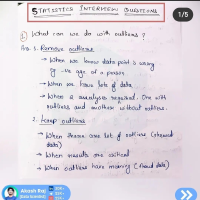 1/5
STATISTICS INTERVIEW QUESTIONS
① What can we do with outliers ?
Ans. 1. Remove outliers
→ When we know data point is wrong
Eg -ve age of a person
→ When we have lots of data
→ When 2 analyses required. One with
outliers and another without outliers.
2. Keep outliers
→ When there are lot of outliers (skewed
data)
→ When results are critical
→ When outliers have meaning (fraud data)
Akash Raj